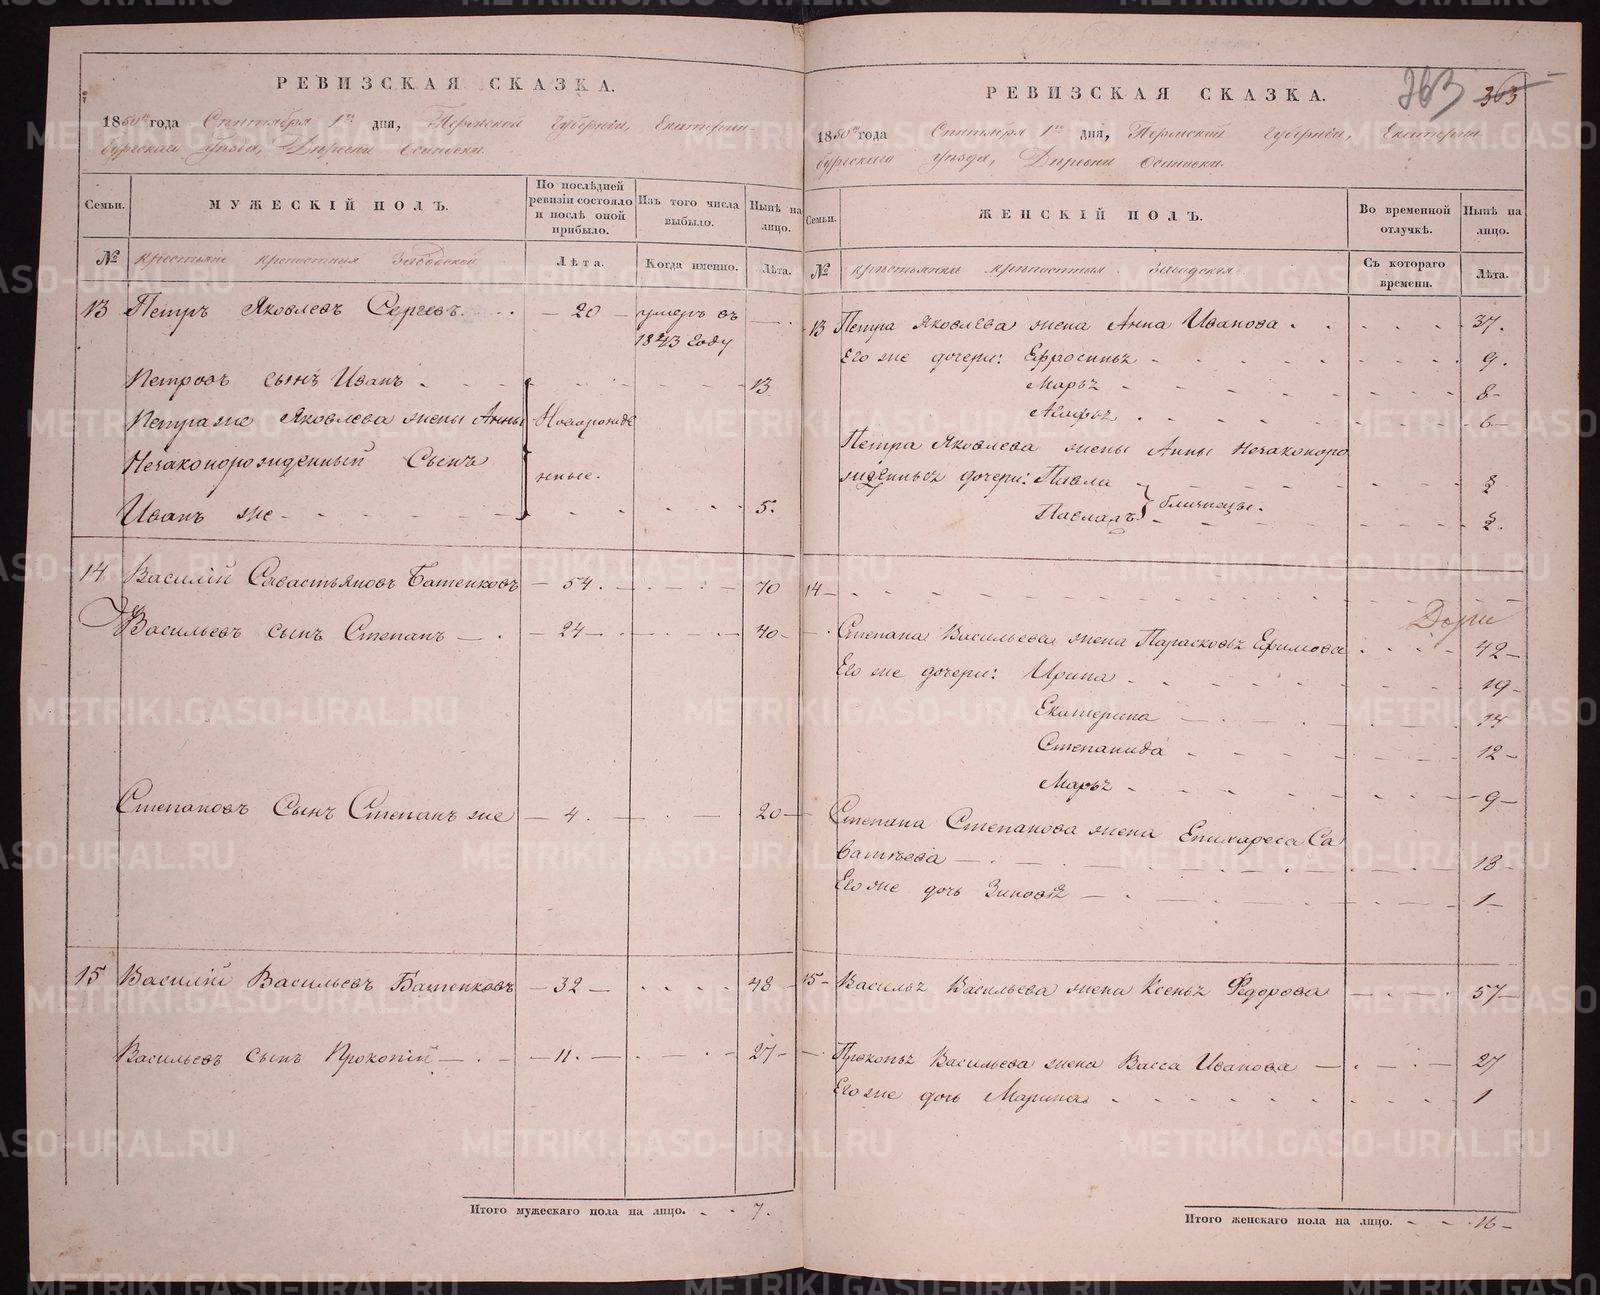 РЕВИЗСКАЯ СКАЗКА.
1850го года Сентября 1го дня, Пермской Губерніи, Екатерин-
бургскаго Уѣзда, Деревни Осиновки.
Семьи.
МУЖЕСКІЙ ПОЛЪ.
По послѣдней ревизіи состояло и послѣ оной прибыло.
Изъ того числа выбыло.
Нынѣ на лицо.
№
Крестьяне крепостныя Заводской
Лѣта.
Когда именно.
Лѣта.
13 Петръ Яковлевъ Сергеевъ. 20 умеръ въ
1843 Году
Петровъ сынъ Иванъ 13
Петра же Яковлева жены Анны Новорожде
Незаконорожденный Сынъ нные.
Иванъ же 5.
14 Василій Савастьяновъ Батенковъ 54. 70
Васильевъ сынъ Степанъ 24 40
Степановъ Сынъ Степанъ же 4. 20
15 Василій Васильевъ Батенковъ 32 48
Васильевъ сынъ Прокопій 11. 27
Итого мужескаго пола на лицо. 7.
363 363
РЕВИЗСКАЯ СКАЗКА.
1850го года Сентября 1го дня, Пермской Губерніи, Екатерин
бургскаго Уѣзда, Деревни Осиновки.
Семьи.
ЖЕНСКІЙ ПОЛЪ.
Во временной отлучкѣ.
Нынѣ на лицо.
№
крестьянки крепостныя Заводския
Съ котораго времени.
Лѣта.
13 Петра Яковлева жена Анна Иванова 37.
Его же дочери: Ефросинья 9.
Марья 8
Агафья 6
Петра Яковлева жены Анны незаконоро
жденныя дочери: Павла
Павла близнецы.
14
Степана Васильева жена Парасковья Ефимова 42
Его же дочери: Ирина 19
Екатерина 14
Степанида 12
Марья 9
Степана Степанова жена Епихареса Са
ватѣева 18
Его же дочь Зиновья 1
15 Василья Васильева жена Ксенья Федорова 57
Прокопья Васильева жена Васса Иванова 27
Его же дочь Марина 1
Итого женскаго пола на лицо. 16
METRIKI.GASO-URAL.RU